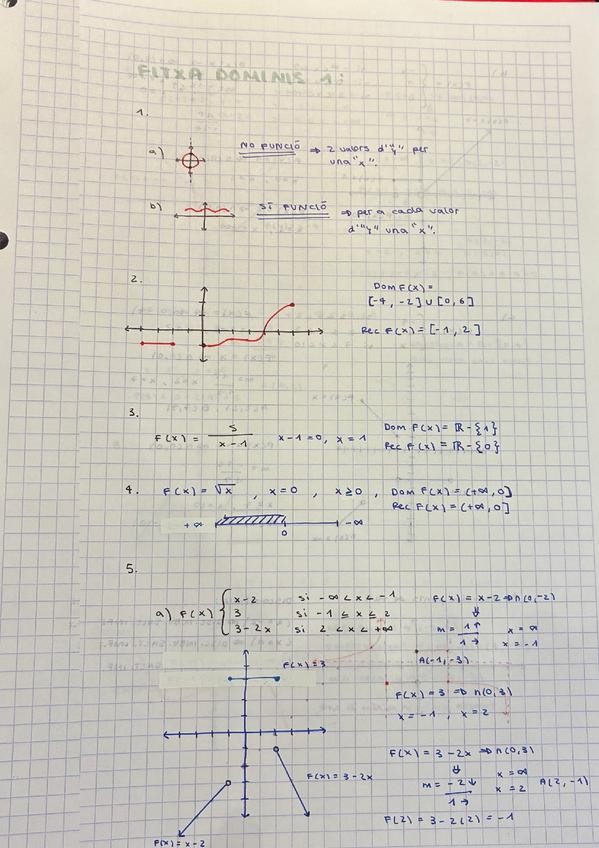 FITXA DOMINIS 1:
1.
a) NO FUNCIÓ ⇒ 2 valors d'"y" per
una "x".
b) SÍ FUNCIÓ ⇒ per a cada valor
d'"y" una "x".
2.
Dom F(x) =
[-4, -2] ∪ [0, 6]
Rec F(x) = [-1, 2]
3.
F(x) = 5 / x - 1   x - 1 = 0, x = 1   Dom F(x) = ℝ - {1}
Rec F(x) = ℝ - {0}
4. F(x) = √x , x = 0 , x ≥ 0 , Dom F(x) = (+∞, 0]
Rec F(x) = (+∞, 0]
+∞ 0 -∞
5.
a) F(x) { x - 2 si -∞ < x < -1
3 si -1 ≤ x ≤ 2
3 - 2x si 2 < x < +∞
F(x) = x - 2 ⇒ n(0, -2)
m = 1↑ / 1→   x = ∞
x = -1
A(-1, -3)
F(x) = 3
F(x) = 3 ⇒ n(0, 3)
x = -1 , x = 2
F(x) = 3 - 2x ⇒ n(0, 3)
m = -2↓ / 1→   x = ∞
x = 2   A(2, -1)
F(2) = 3 - 2(2) = -1
F(x) = 3 - 2x
F(x) = x - 2